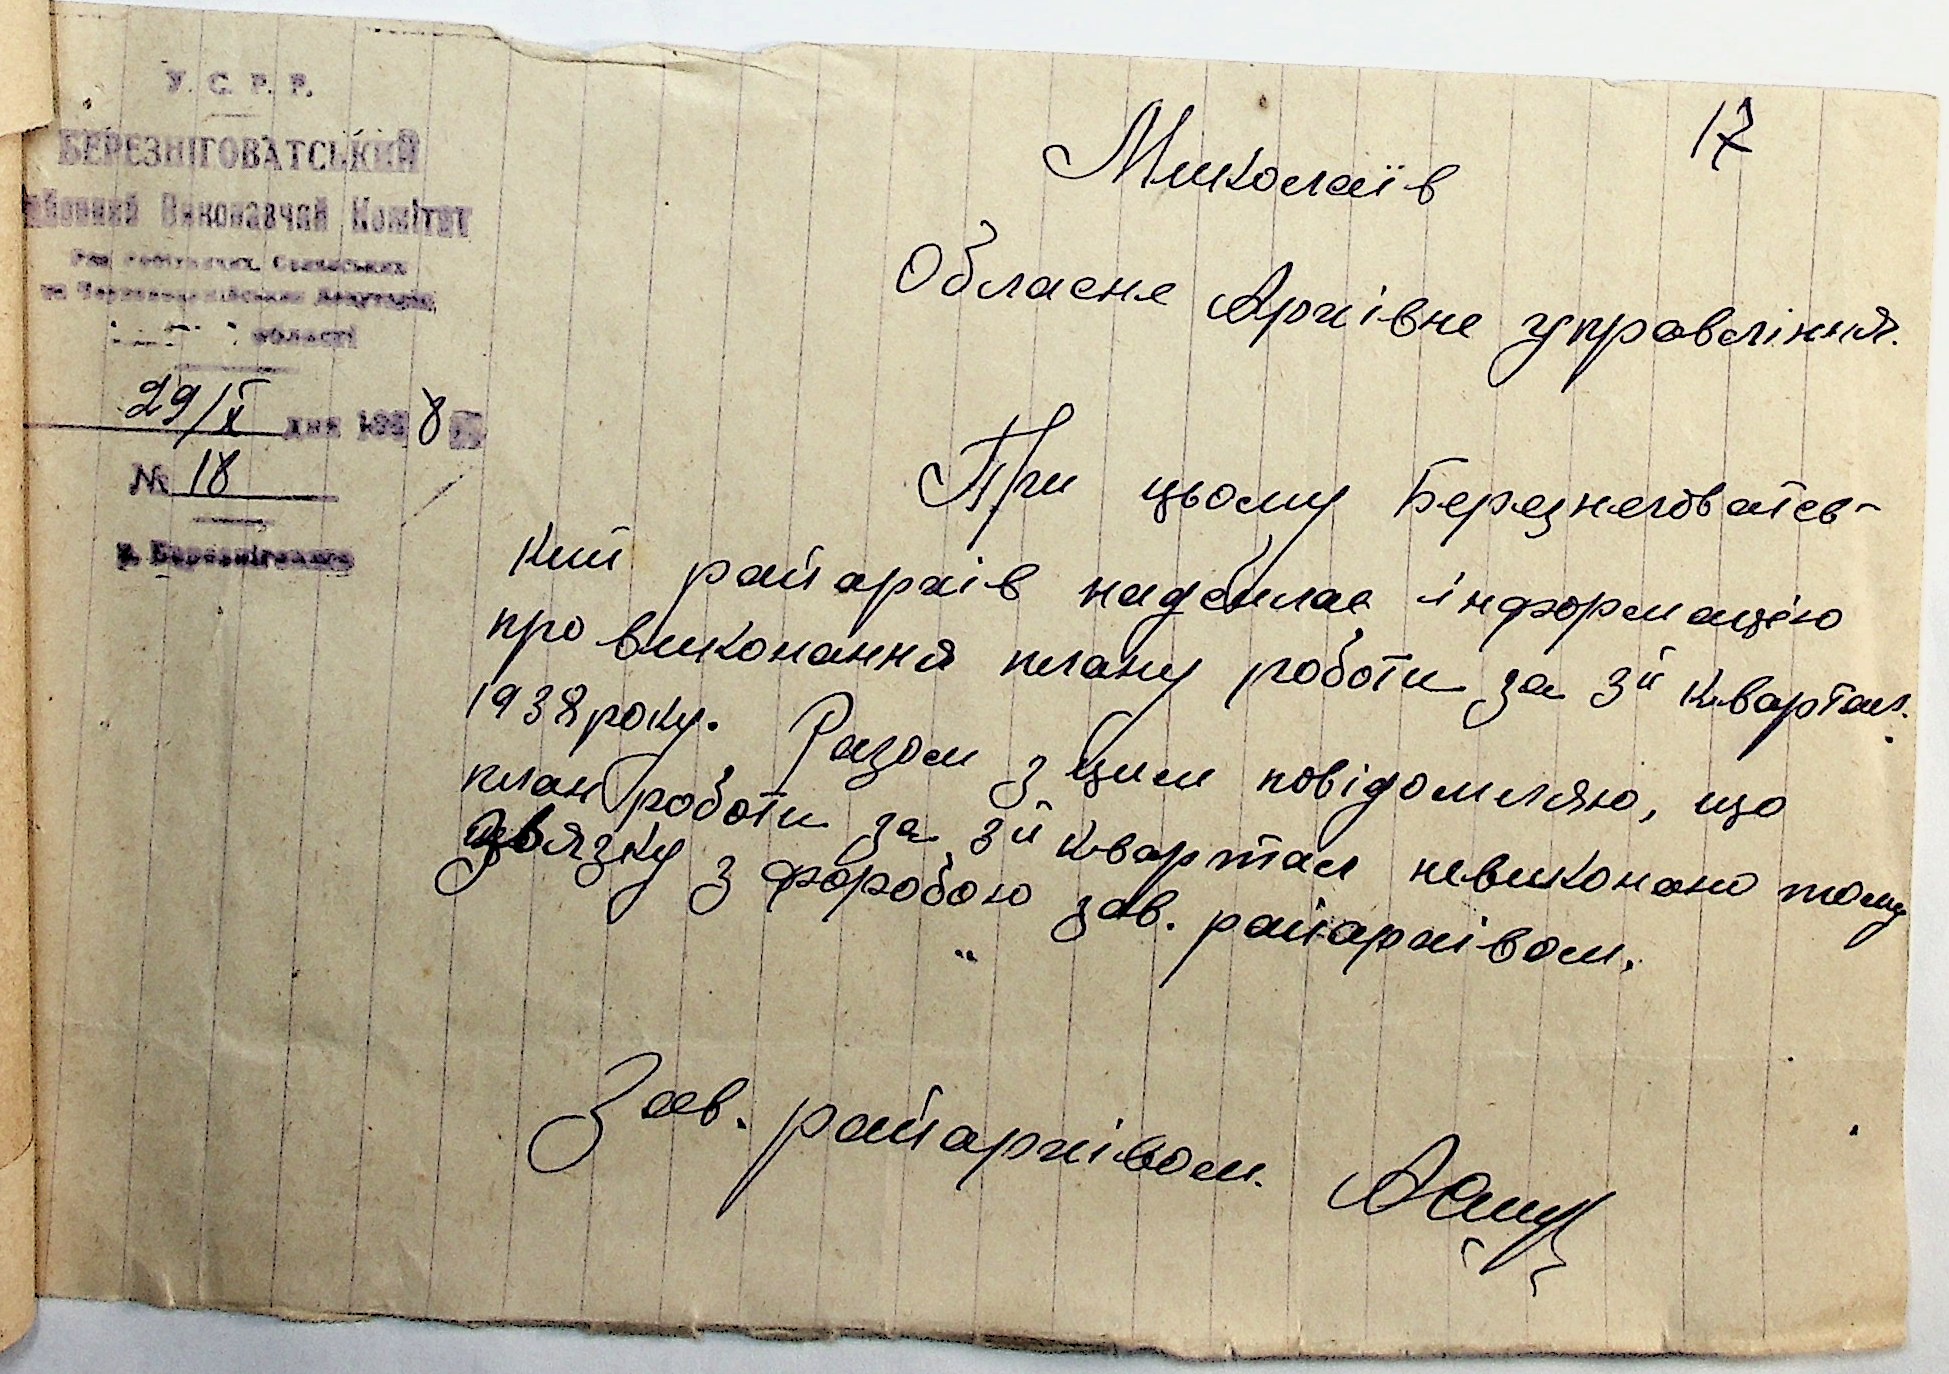 У. С. Р. Р.
БЕРЕЗНІГОВАТСЬКИЙ
Виконавчий Комітет
та Червоноармійських Депутатів
області
29/X дня 1938
№ 18
17
Миколаїв
Обласне Архівне управління.
При цьому Березнеговатсв-
кий райархів надсилає інформацію
про виконання плану роботи за 3й квартал.
1938 року. Разом з цим повідомляю, що
план роботи за 3й квартал невиконано тому
звязку з форобою зав. райархівом.
Зав. райархівом.